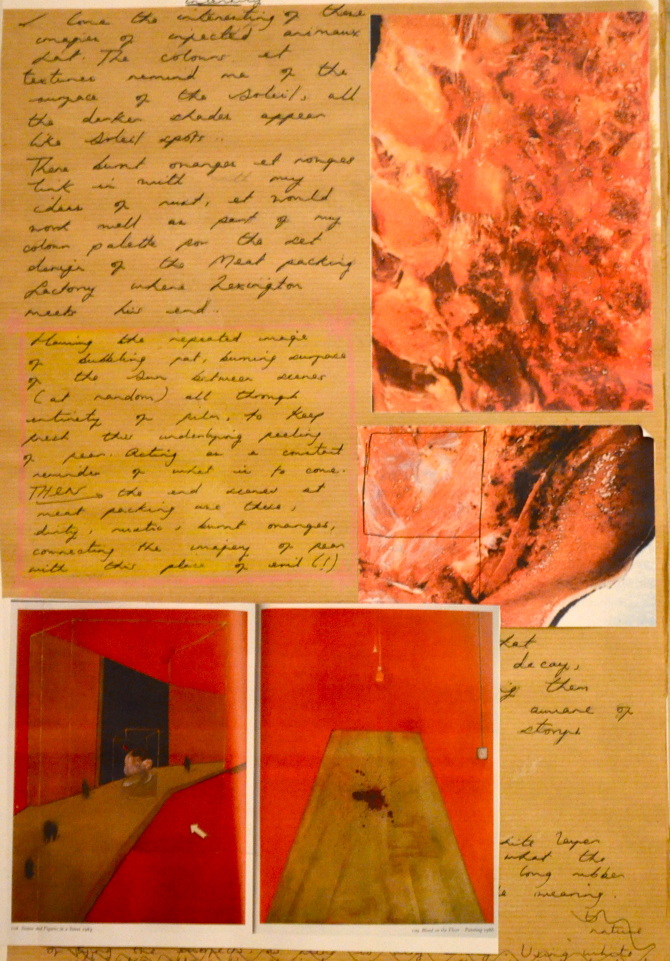 I love the interesting of these
images of infected animaux
fat. The colours et
textures remind me of the
surface of the Soleil, all
the darker shades appear
like Soleil spots.
These burnt oranges et rouges
link in with my
ideas of rust, et would
work well as part of my
colour palette for the set
design of the Meat packing
factory where Lexington
meets his end.
Having the repeated image
of bubbling fat, burning surface
of the Sun between scenes
(at random) all through
entirety of film, to keep
fresh this underlying feeling
of fear. Acting as a constant
reminder of what is to come.
THEN, the end scenes at
meat packing are these,
dirty, rustic, burnt oranges,
connecting the imagery of fear
with this place of evil (!)
decay,
them
aware of
story.
layer
what the
long rubber
meaning.
nature
Blood on the Floor - Painting 1986
Using white,